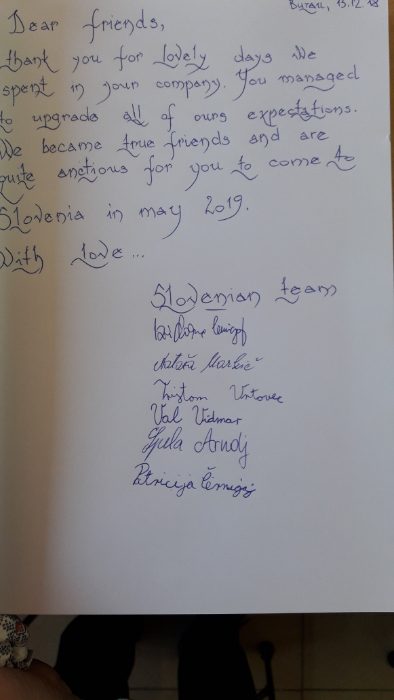 Buzau, 13.12.18
Dear friends,
thank you for lovely days we
spent in your company. You managed
to upgrade all of ours expectations.
We became true friends and are
quite anctious for you to come to
Slovenia in may 2019.
With love...
Slovenian team
Val Vidmar
Patricija